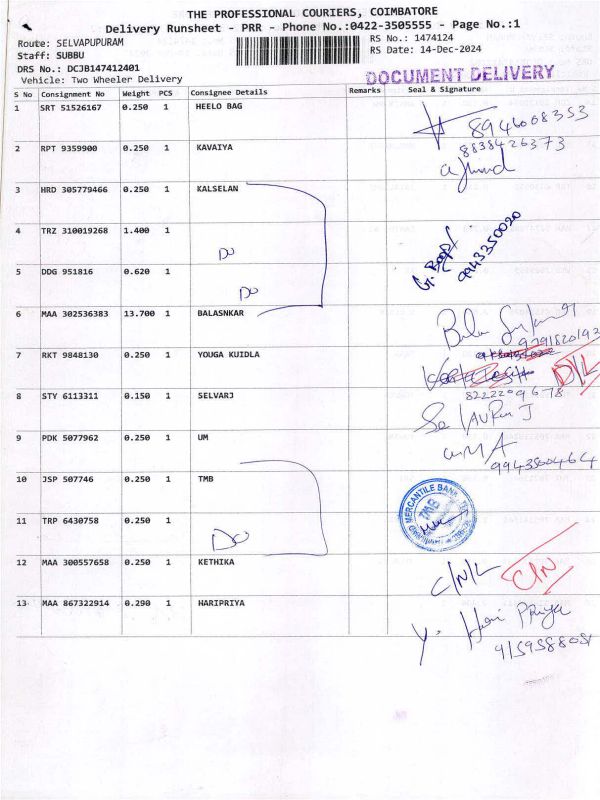 THE PROFESSIONAL COURIERS, COIMBATORE
Delivery Runsheet - PRR - Phone No.:0422-3505555 - Page No.:1
Route: SELVAPUPURAM
RS No.: 1474124
Staff: SUBBU
RS Date: 14-Dec-2024
DRS No.: DCJB147412401
Vehicle: Two Wheeler Delivery
DOCUMENT DELIVERY
S No Consignment No Weight PCS Consignee Details Remarks Seal & Signature
1 SRT 51526167 0.250 1 HEELO BAG 8946008353
2 RPT 9359900 0.250 1 KAVAIYA 8838426373
3 HRD 305779466 0.250 1 KALSELAN
4 TRZ 310019268 1.400 1 DO 9943350020
5 DDG 951816 0.620 1 DO
6 MAA 302536383 13.700 1 BALASNKAR
7 RKT 9848130 0.250 1 YOUGA KUIDLA D/L
8 STY 6113311 0.150 1 SELVARJ 8222209678
9 PDK 5077962 0.250 1 UM UMA
9943500464
10 JSP 507746 0.250 1 TMB MERCANTILE BANK TMB
11 TRP 6430758 0.250 1 DO
12 MAA 300557658 0.250 1 KETHIKA C/N/L C/N
13 MAA 867322914 0.290 1 HARIPRIYA Hari Priya